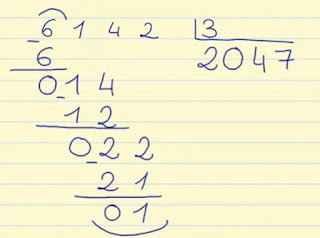 6 1 4 2 3
6 2047
0 1 4
1 2
0 2 2
2 1
0 1